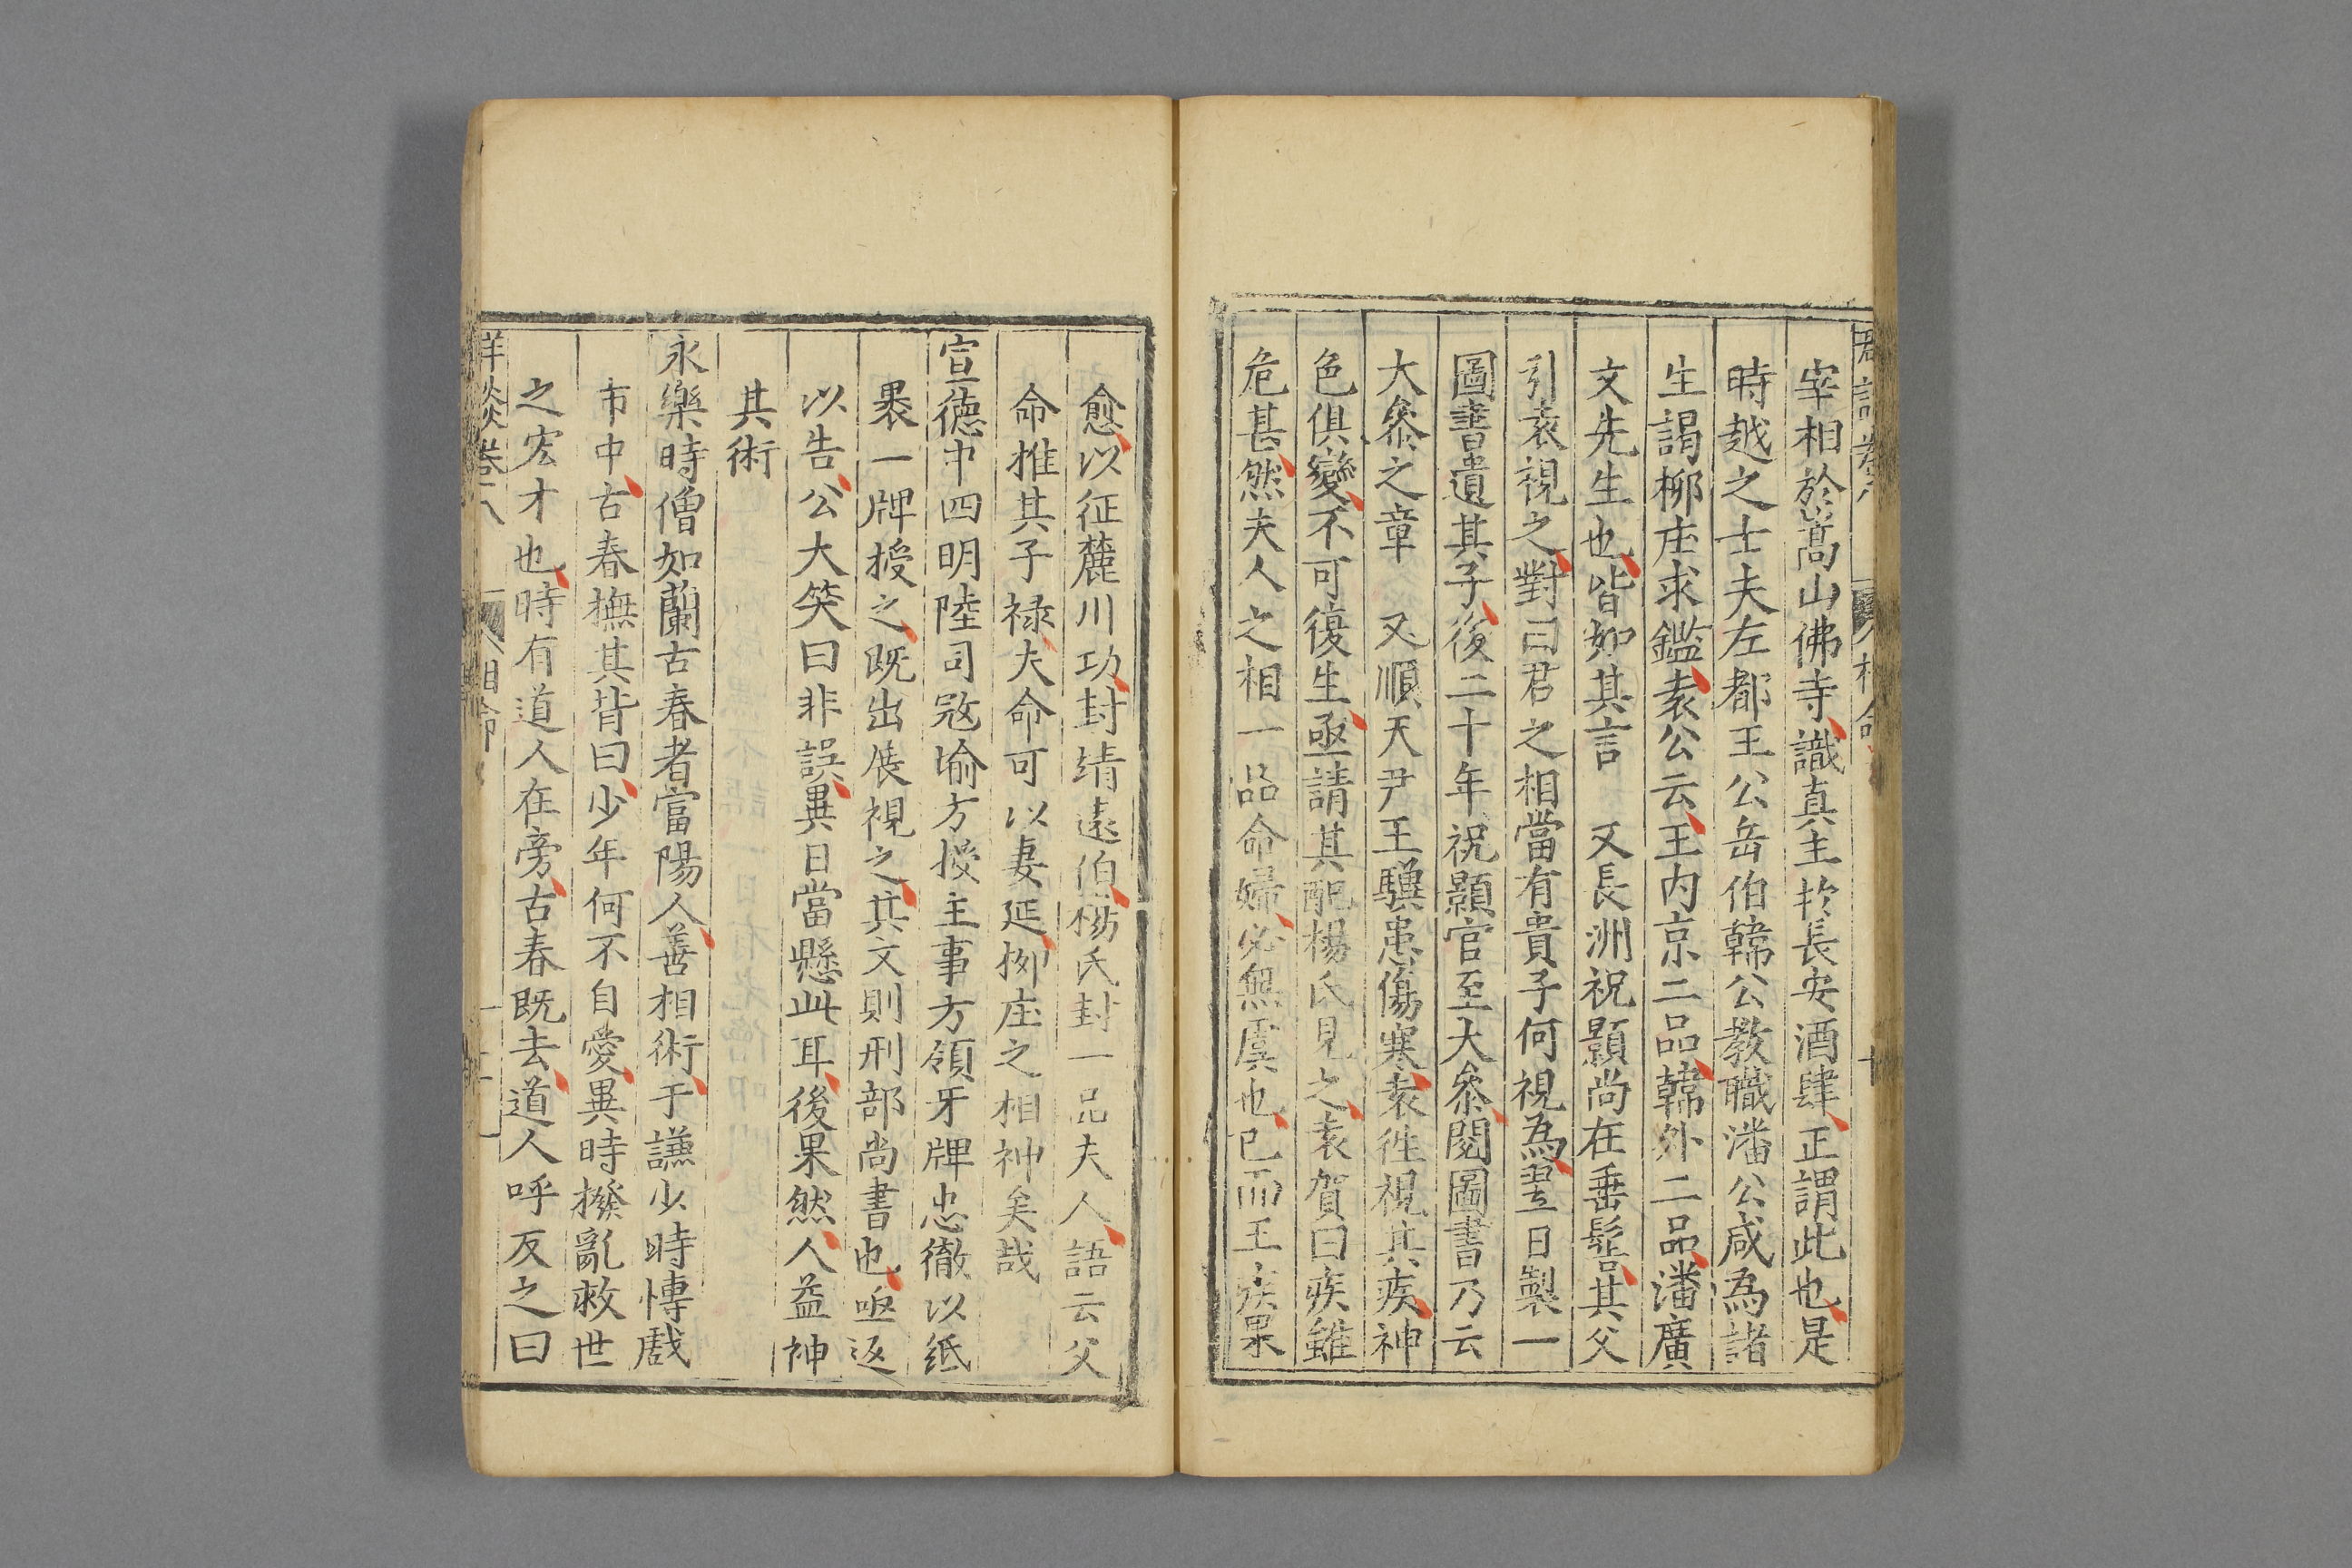 宰相於嵩山佛寺識真主於長安酒肆正謂此也是
時越之士夫左都王公岳伯韓公教職潘公咸為諸
生謁柳庄求鑑袁公云王内京二品韓外二品潘廣
文先生也皆如其言　又長洲祝顥尚在垂髫其父
引袁視之對曰君之相當有貴子何視為翌日製一
圖書遺其子後二十年祝顥官至大叅閱圖書乃云
大叅之章　又順天尹王驥患傷寒袁徃視其疾神
色俱變不可復生亟請其配楊氏見之袁賀曰疾雖
危甚然夫人之相一品命婦必無虞也已而王疾果
愈以征麓川功封靖遠伯楊氏封一品夫人語云父
命推其子禄夫命可以妻延柳庄之相神矣哉
宣德中四明陸司宼瑜方授主事方領牙牌忠徹以紙
裹一牌授之既出展視之其文則刑部尚書也亟返
以告公大笑曰非誤異日當懸此耳後果然人益神
其術
永樂時僧如蘭古春者當陽人善相術于謙少時愽戲
市中古春撫其背曰少年何不自愛異時撥亂救世
之宏才也時有道人在旁古春既去道人呼反之曰